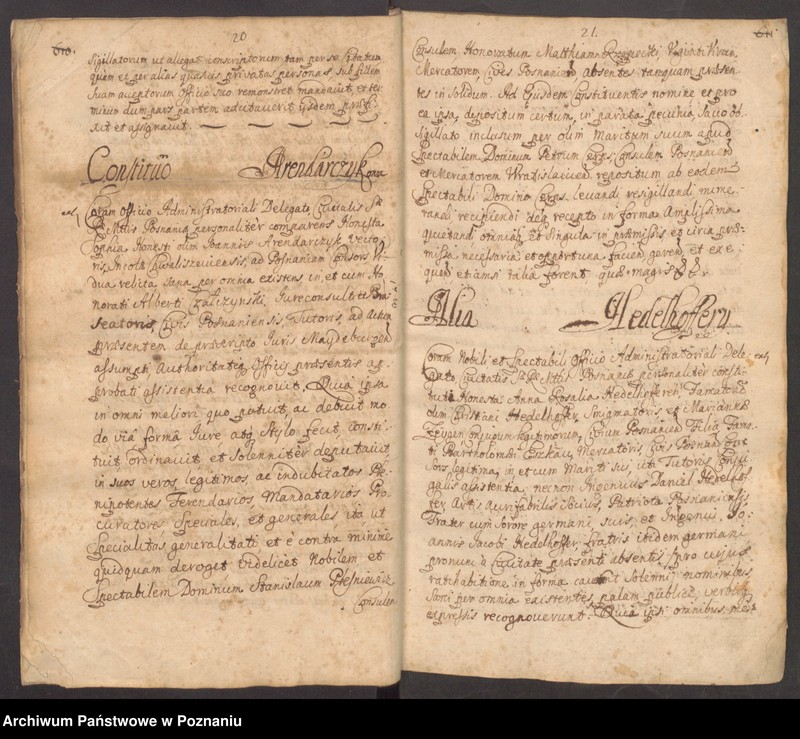 20
610.
Sigillatorum ut allegat conscriptorum tam per se Citatum
quam et per alias quasvis privatas personas, sub fidem
suam acceptorum Officio suo remonstret mandavit, et ter-
minum dum pars partem adcitaverit ijsdem præfi-
xit et assignavit.
Constituõ Arendarczykowa
Coram Officio Administratoriali Delegato Civitatis
Mttis Posnaniæ personaliter comparens Honesta
Sophia Honesti olim Joannis Arendarczyk
Incolæ Chwaliszeviensis, ad Posnaniam Consors Vi-
dua relicta sana per omnia existens in, et cum Ho-
norati Alberti Zalczynski, Jureconsulti
Civis Posnaniensis, Tutoris, ad Actum
præsentem de præscripto Juris Maydeburgen
assumpti Authoritateq Officij præsentis ap-
probati assistentia recognovit, Quia ipsa
in omni meliori quo potuit, ac debuit mo-
do via forma Jure, atq Stylo fecit, consti-
tuit ordinavit et Solenniter deputavit
in suos veros legitimos, ac indubitatos Ple-
nipotentes Ferendarios, Mandatarios Pro-
curatores Speciales, et generales, ita ut
Specialitas generalitati et e contra minime
quidquam deroget videlicet Nobilem et
Spectabilem Dominum Stanislaum
Consulem
21.
611
Consulem Honoratum Matthiam
Mercatorem, Cives Posnanien absentes tanquam præsen-
tes in Solidum. Ad Ejusdem Constituentis nomine et pro
ea ipsa, depositum certum, in parata pecunia, Sacco ob-
sigillato inclusum per olim Maritum suum apud
Spectabilem Dominum Petrum Cerps, Consulem Posnanien
et Mercatorem Vratislavien repositum ab eodem
Spectabili Domino Cerps levandi resigillandi nume-
randi recipiendi deq recepto in forma Amplissima
quietandi omniaq et Singula in præmissis et circa præ-
missa necessaria et opportuna faciend, gerend, et exe-
quend etiamsi talia forent quæ magis &
Alia Hedelhofferu
Coram Nobili et Spectabili Officio Administratoriali Dele-
gato Civitatis Mttis Posnaniæ personaliter consti-
tuti Honestas Anna Rosalia Hedelhofferen Famatorum
olim Christiani Hedelhoffer, Smigmatoris et Mariannæ
Conjugum legitimorum, Civium Posnanien Filia Fama-
ti Bartholomæi Mercatoris, Civis Posnanien
Consors, legitima, in et cum Mariti sui, uti Tutoris Conju-
galis assistentia, necnon Ingenuus Daniel Hedelhof-
fer Artis Aurifabrilis Socius, Patriota Posnaniensis,
Frater cum Sorore germani, suis, et Ingenui Jo-
annis Jacobi Hedelhoffer, Fratris itidem germani
pronunc a Civitate præsenti absentis (pro cujus
ratihabitione in forma cavent Solenni) nominibus
Sani per omnia existentes, palam publice, verbisq
expressis recognoverunt. Quia ipsi omnibus me-